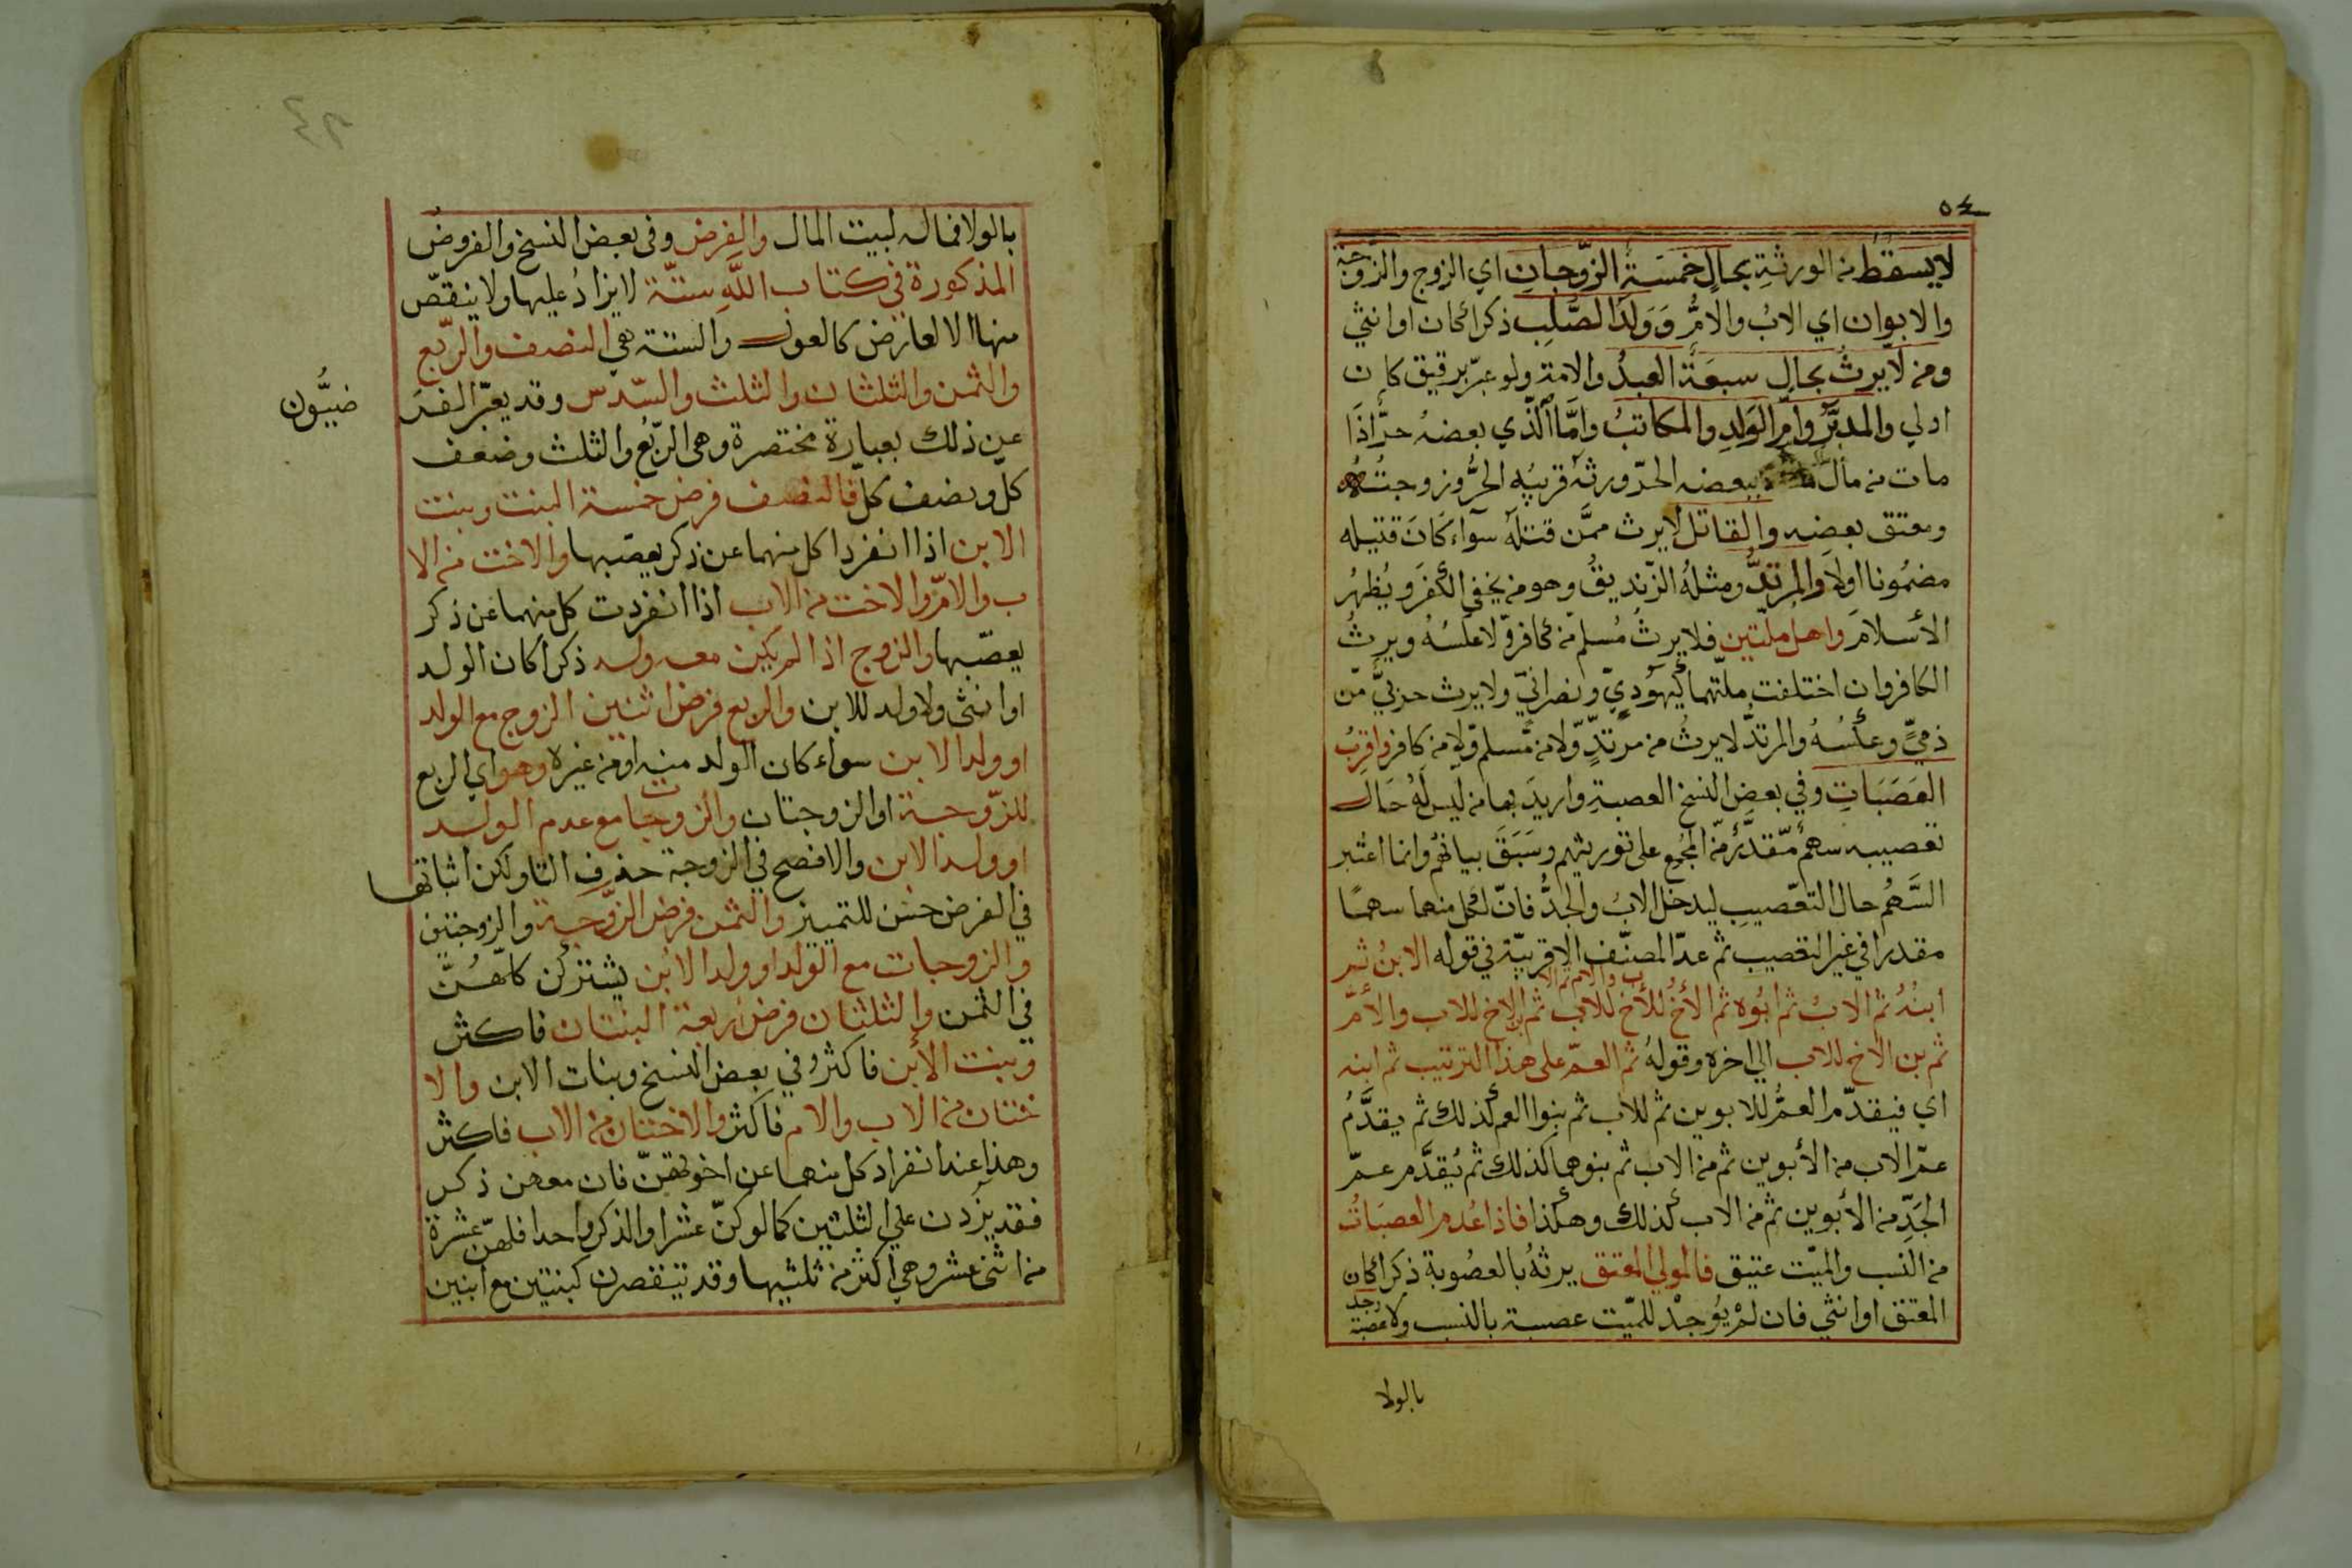 ٥٤
لا يسقط من الورثة بحال خمسة الزوجان اي الزوج والزوجة
والابوان اي الاب والام وولد الصلب ذكرا كان او انثي
ومن لا يرث بحال سبعة العبد والامة ولو عبر برقيق كان
اولي والمدبر وام الولد والمكاتب واما الذي بعضه حر اذا
مات من مال ببعضه الحر ورثه قريبه الحر وزوجته
ومعتق بعضه والقاتل لا يرث ممن قتله سواء كان قتيله
مضمونا اولا والمرتد ومثله الزنديق وهو من يخفي الكفر ويظهر
الاسلام واهل ملتين فلا يرث مسلم من كافر ولا عكسه ويرث
الكافر وان اختلفت ملتهما كيهودي ونصراني ولا يرث حربي من
ذمي وعكسه والمرتد لا يرث من مرتد ولا من مسلم ولا من كافر واقرب
العصبات وفي بعض النسخ العصبة واريد بها من ليس له حال
تعصيبه سهم مقدر من المجمع على توريثهم وسبق بيانهم وانما اعتبر
السهم حال التعصيب ليدخل الاب والجد فان لكل منهما سهما
مقدرا في غير التعصيب ثم عد المصنف الاقربية في قوله الابن ثم
ابنه ثم الاب ثم ابوه ثم الاخ للاخ للاب ثم ابن الاخ للاب والام
ب والام ثم الا
ثم بن الاخ للاب الي اخره وقوله ثم العم على هذا الترتيب ثم ابنه
اي فيقدم العم للابوين ثم للاب ثم بنوا العم كذلك ثم يقدم
عم الاب من الأبوين ثم من الاب ثم بنوهما كذلك ثم يقدم عم
الجد من الأبوين ثم من الاب كذلك وهكذا فاذا عدم العصبات
من النسب والميت عتيق فالمولي المعتق يرثه بالعصوبة ذكرا كان
المعتق او انثي فان لم يوجد للميت عصبة بالنسب ولا عصبة
وجد
بالولا
بالولا فماله لبيت المال والفرض وفي بعض النسخ والفروض
المذكورة في كتاب الله ستة لا يزاد عليها ولا ينقص
منها الا لعارض كالعول والستة هي النصف والربع
والثمن والثلثان والثلث والسدس وقد يعبر الفر
ضيون
عن ذلك بعبارة مختصرة وهي الربع والثلث وضعف
كل ونصف كل فالنصف فرض خمسة البنت وبنت
الابن اذا انفردا كل منهما عن ذكر يعصبها والاخت من الا
ب والام والاخت من الاب اذا انفردت كل منهما عن ذكر
يعصبها والزوج اذا لم يكن معه ولد ذكرا كان الولد
او انثى ولا ولد للابن والربع فرض اثنين الزوج مع الولد
او ولد الابن سواء كان الولد منه او من غيره وهو اي الربع
للزوجة او الزوجتان والزوجات مع عدم الولد
او ولد الابن والافصح في الزوجة حذف التا ولكن اثباتها
في الفرض حسن للتمييز والثمن فرض الزوجة والزوجتين
والزوجات مع الولد او ولد الابن يشتركن كلهن
في الثمن والثلثان فرض اربعة البنتان فاكثر
وبنت الأبن فاكثر وفي بعض النسخ وبنات الابن والا
ختان من الاب والام فاكثر والاختان من الاب فاكثر
وهذا عند انفراد كل منهما عن اخوتهن فان معهن ذكر
فقد يزدن على الثلثين كما لو كن عشرا والذكر واحدا فلهن عشرة
من اثني عشر وهي اكثر من ثلثيها وقد تنقصن كبنتين مع ابنين